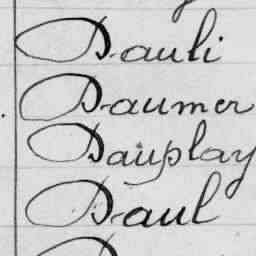 Dauli
Daumer
Dauplay
Daul